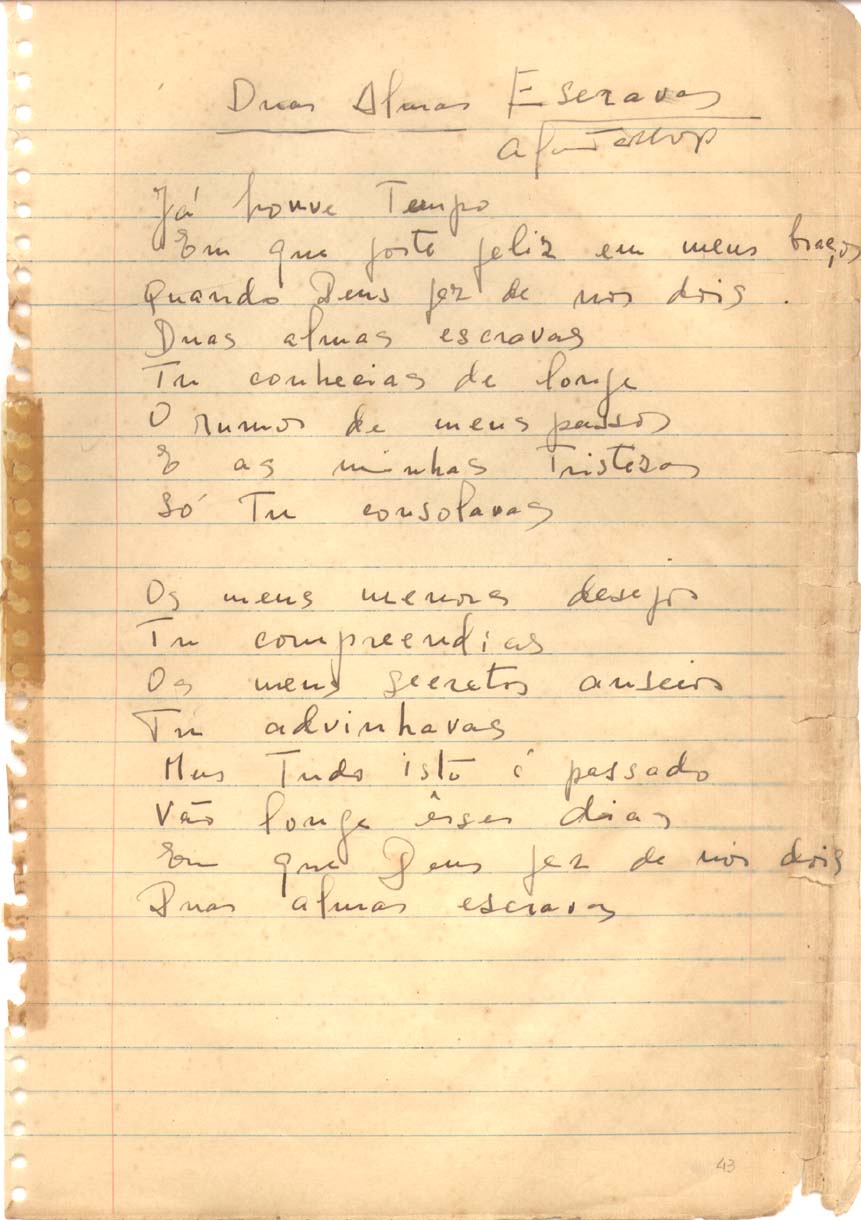 Duas Almas Escravas
Já houve Tempo
Em que foste feliz em meus braços
Quando Deus fez de nos dois.
Duas almas escravas
Tu conhecias de longe
O rumos de meus passos
E as minhas Tristezas
Só Tu consolavas
Os meus menores desejos
Tu compreendias
Os meus secretos anseios
Tu advinhavas
Mas Tudo isto é passado
Vão longe êsses dias
Em que Deus fez de nós dois
Duas almas escravas
43